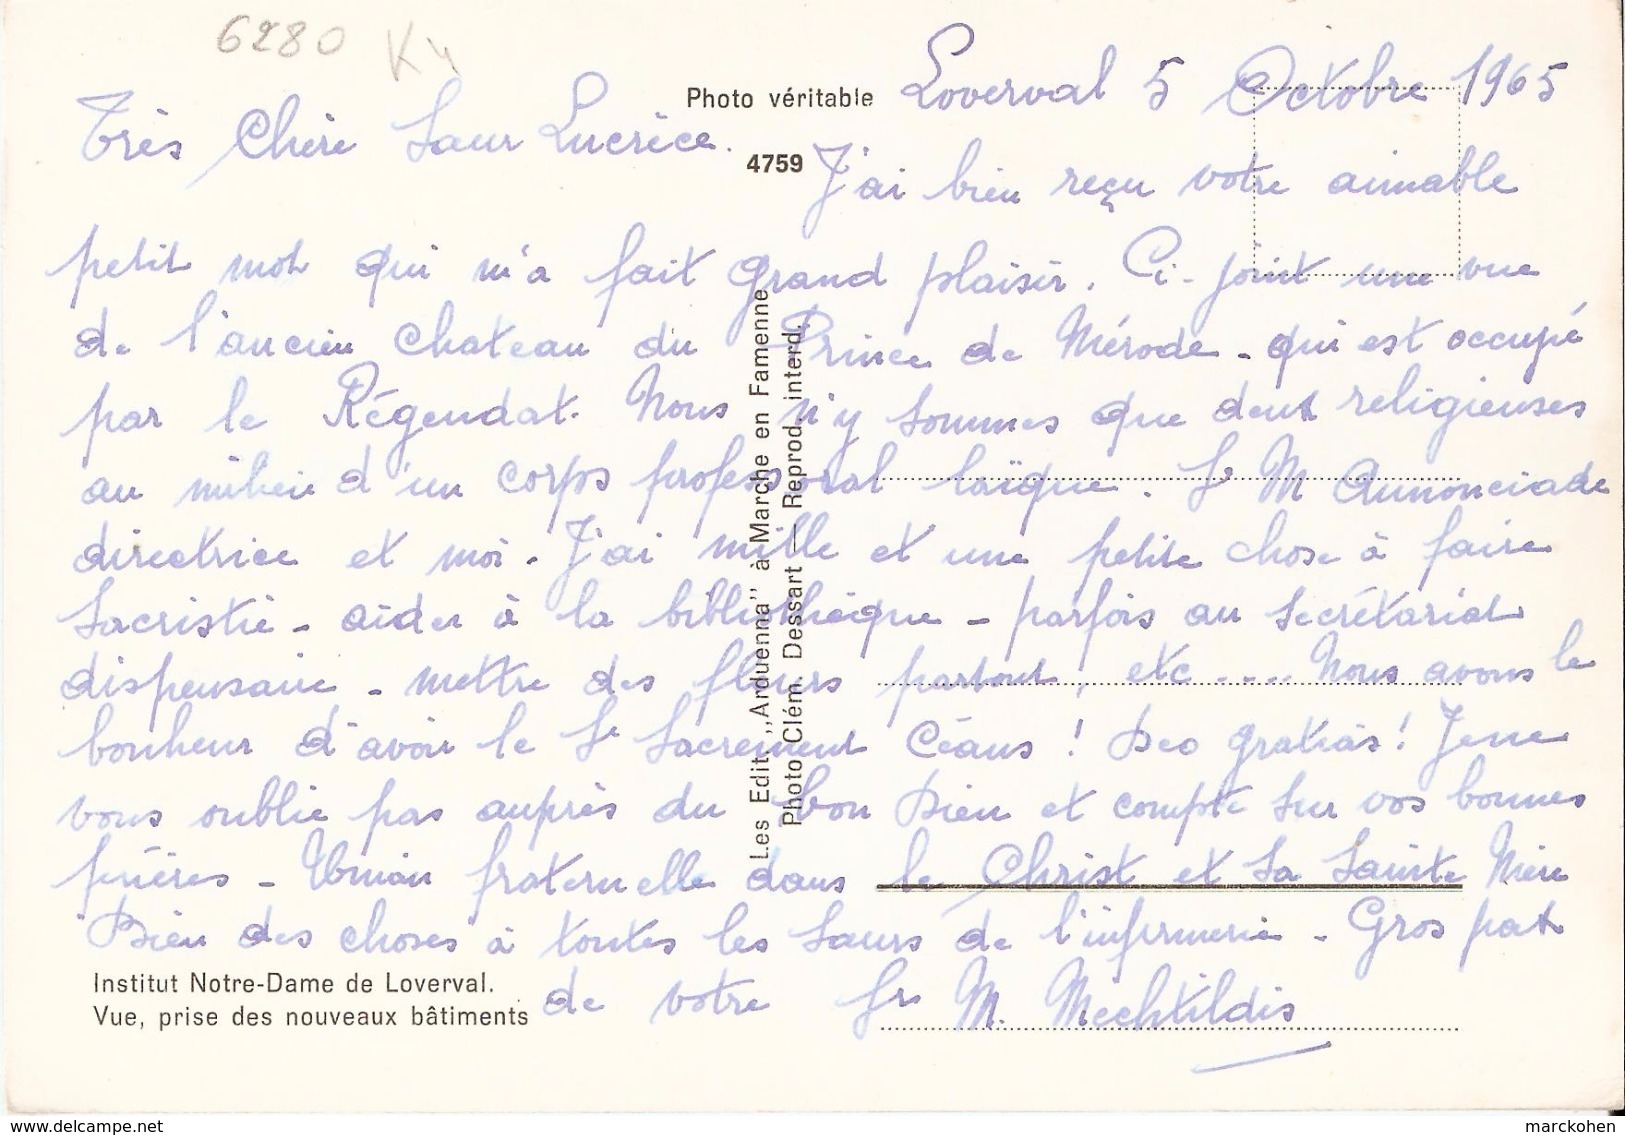 6280 K4
Loverval 5 Octobre 1965
Photo véritable
4759
Très Chère Sœur Lucrèce.
J'ai bien reçu votre aimable
petit mot qui m'a fait grand plaisir. Ci-joint une vue
de l'ancien chateau du Prince de Mérode - qui est occupé
par le Régendat. Nous n'y sommes que deux religieuses
au milieu d'un corps professoral laïque. Sr M Annonciade
directrice et moi. J'ai mille et une petite chose à faire
Sacristie - aider à la bibliothèque - parfois au secrétariat
dispensaire - mettre des fleurs partout, etc .... Nous avons le
bonheur d'avoir le St Sacrement Céans ! Deo gratias ! Je ne
vous oublie pas auprès du bon Dieu et compte sur vos bonnes
prières - Union fraternelle dans le Christ et Sa Sainte Mère
Bien des choses à toutes les Sœurs de l'infirmerie - Gros pax
de votre Sr M. Mechtildis
Les Edit. „Arduenna" à Marche en Famenne
Photo Clém. Dessart — Reprod. interd.
Institut Notre-Dame de Loverval.
Vue, prise des nouveaux bâtiments
www.delcampe.net
marckohen